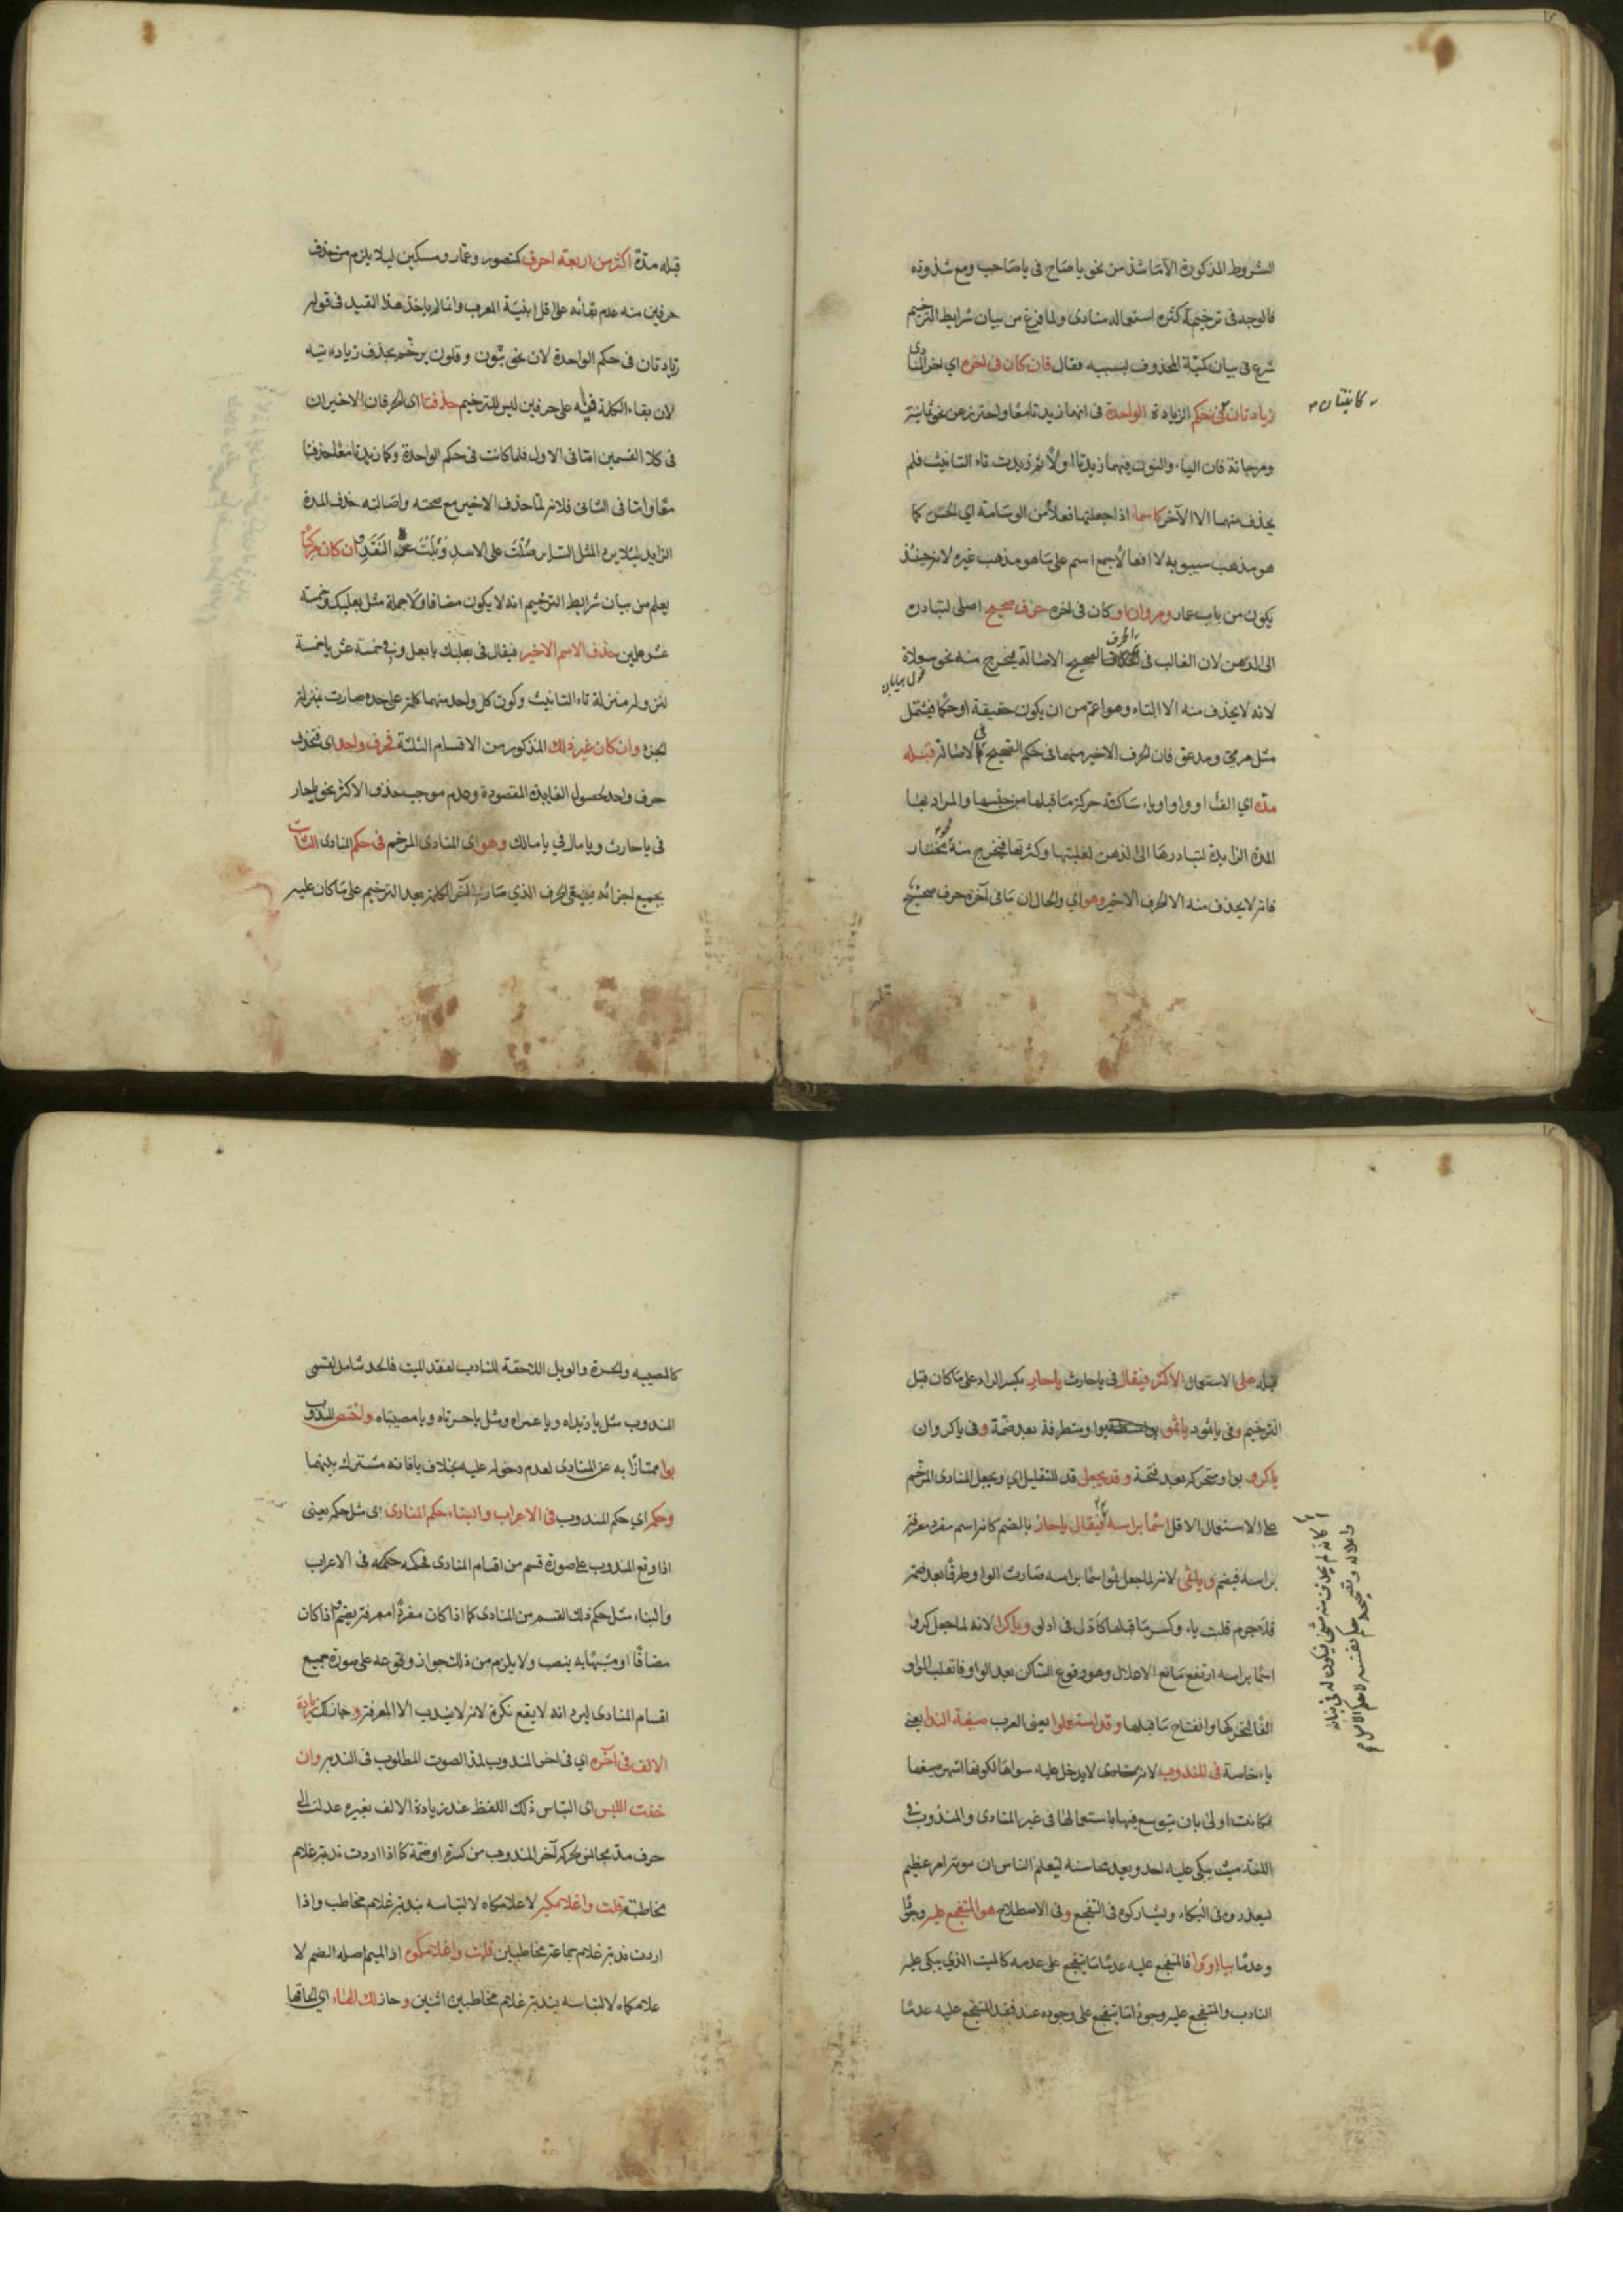 الشروط المذكورة الا ما شذ من نحو يا صاح فى يا صاحب ومع شذوذه
فالوجه فى ترخيمه كثرة استعماله منادى ولما فرغ من بيان شرايط الترخيم
شرع فى بيان كمية المحذوف بسببه فقال فان كان فى اخره اي اخر المنادى
زيادتان فى حكم الزيادة الواحدة فى انهما زيدتا معا واحترز عن نحو ثمانية
كائنتان
ومرجانة فان الياء والنون فيهما زيدتا اولا ثم زيدت تاء التانيث فلم
يحذف منهما الا الآخر كاسماء اذا جعلتها فعلاء من الوسامة اي الحسن كما
هو مذهب سيبويه لا افعالا جمع اسم على ما هو مذهب غيره لانه حينئذ
يكون من باب عمار ومروان او كان فى اخره حرف صحيح اصلى لتبادره
الى الذهن لان الغالب فى الحرف الصحيح الاصالة فيخرج منه نحو سعلاة
غول بيابان
لانه لا يحذف منه الا التاء وهو اعم من ان يكون حقيقة او حكما فيشمل
مثل مرمى ومدعو فان الحرف الاخير منهما فى حكم الصحيح فى الاصالة قبله
مدة اي الف او واو او ياء ساكنة حركة ما قبلها من جنسها والمراد بها
المدة الزايدة لتبادرها الى الذهن لغلبتها وكثرتها فيخرج منه نحو مختار
فانه لا يحذف منه الا الحرف الاخير وهو اي والحال ان ما فى آخره حرف صحيح
قبله مدة اكثر من اربعة احرف كمنصور وعمار ومسكين ليلا يلزم من حذف
حرفين منه عدم بقائه على اقل ابنية المعرب وانما لم ياخذ هذا القيد فى قوله
زيادتان فى حكم الواحدة لان نحو ثبون وقلون يرخم بحذف زيادتيه
لان بقاء الكلمة فيه على حرفين ليس للترخيم حذفتا اى الحرفان الاخيران
فى كلا القسمين اما فى الاول فلما كانت فى حكم الواحدة وكما زيدتا معا حذفتا
معا واما فى الثانى فلانه لما حذف الاخير مع صحته واصالته حذف المدة
الزايدة ليلا يرد المثل الساير صُلْتُ على الاسد وبُلْتُ عن النَقَد وان كان مركبا
يعلم من بيان شرايط الترخيم انه لا يكون مضافا ولا جملة مثل بعلبك وخمسة
عشر علمين حذف الاسم الاخير فيقال فى بعلبك يا بعل وفى خمسة عشر يا خمسة
لنزوله منزلة تاء التانيث وكون كل واحد منهما كلمة على حده صارت بمنزلة
الجزء وان كان غير ذلك المذكور من الاقسام الثلثة فحرف واحد اى فتحذف
حرف واحد لحصول الفايدة المقصودة وعدم موجب حذف الاكثر نحو يا حار
فى يا حارث ويا مال في يا مالك وهو اى المنادى المرخم فى حكم المنادى الثابت
بجميع اجزائه فيبقى الحرف الذي صار آخر الكلمة بعد الترخيم على ما كان عليه
قبله على الاستعمال الاكثر فيقال فى يا حارث يا حارِ بكسر الراء على ما كان قبل
الترخيم وفى يا ثمود يا ثمو بواو متطرفة بعد ضمة وفى يا كروان
يا كرو بواو متحركة بعد فتحة وقد يجعل قد للتقليل اي ويجعل المنادى المرخم
على الاستعمال الاقل اسما براسه فيقال يا حارُ بالضم كانه اسم مفرد معرفة
براسه فيضم ويا ثمى لانه لما جعل ثمو اسما براسه صارت الواو طرفا بعد ضمة
فلا جرم قلبت ياء وكسر ما قبلها كادلى فى ادلو ويا كرا لانه لما جعل كرو
اسما براسه ارتفع مانع الاعلال وهو وقوع الساكن بعد الواو فانقلب الواو
الفا لتحركها وانفتاح ما قبلها وقد استعملوا يعنى العرب صيغة الندا يعنى
ياء خاصة فى المندوب لانه لا يدخل عليه سواها لكونها اشهر صيغها
فكانت اولى بان يتوسع فيها باستعمالها فى غير المنادى والمندوب فى
اللغة ميت يبكى عليه احد ويعد محاسنه ليعلم الناس ان موته امر عظيم
ليعذروه فى البكاء ويشاركوه فى التفجع وفى الاصطلاح هو المتفجع عليه وجودا
وعدما بيا او وا فالمتفجع عليه عدما ما يتفجع على عدمه كالميت الذي يبكى عليه
النادب والمتفجع عليه وجودا ما يتفجع على وجوده عند فقد المتفجع عليه عدما
كالمصيبه والحسرة والويل اللاحقة للنادب لفقد الميت فالحد شامل لقسمى
المندوب مثل يا زيداه ويا عمراه ومثل يا حسرتاه ويا مصيبتاه واختص المندوب
بوا ممتازا به عن المنادى لعدم دخوله عليه بخلاف يا فانه مشترك بينهما
وحكمه اي حكم المندوب فى الاعراب والبناء حكم المنادى اى مثل حكمه يعنى
اذا وقع المندوب على صورة قسم من اقسام المنادى فحكمه حكمه فى الاعراب
والبناء مثل حكم ذلك القسم من المنادى كما اذا كان مفردا معرفة يضم واذا كان
مضافا او مشبها به ينصب ولا يلزم من ذلك جواز وقوعه على صورة جميع
اقسام المنادى ليرد انه لا يقع نكرة لانه لا يندب الا المعرفة وجاز لك زيادة
الالف فى اخره اي فى اخر المندوب لمد الصوت المطلوب فى الندبة وان
خفت اللبس اى التباس ذلك اللفظ عند زيادة الالف بغيره عدلت الى
حرف مد مجانس لحركة آخر المندوب من كسرة او ضمة كما اذا اردت ندبة غلام
مخاطبة قلت وا غلامكيه لا غلامكاه لالتباسه بندبة غلام مخاطب واذا
اردت ندبة غلام جماعة مخاطبين قلت وا غلامكموه اذ الميم اصله الضم لا
غلامكماه لالتباسه بندبة غلام مخاطبين اثنين وجاز لك الهاء اي الحاقها